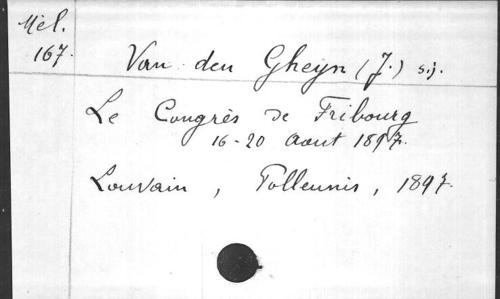 Mél.
167.
Van den Gheyn (J.) s.j.
Le Congrès de Fribourg
16-20 Aout 1897.
Louvain, Polleunis, 1897.